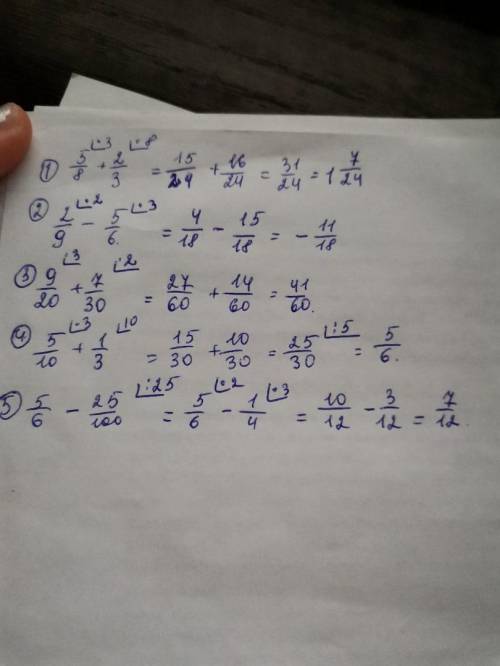 ① 5/8 ⌊·3 + 2/3 ⌊·8 = 15/24 + 16/24 = 31/24 = 1 7/24
② 2/9 ⌊·2 − 5/6. ⌊·3 = 4/18 − 15/18 = − 11/18
③ 9/20 ⌊3 + 7/30 ⌊·2 = 27/60 + 14/60 = 41/60.
④ 5/10 ⌊·3 + 1/3 ⌊10 = 15/30 + 10/30 = 25/30 ⌊:5 = 5/6.
⑤ 5/6 − 25/100 ⌊:25 = 5/6 ⌊·2 − 1/4 ⌊·3 = 10/12 − 3/12 = 7/12.